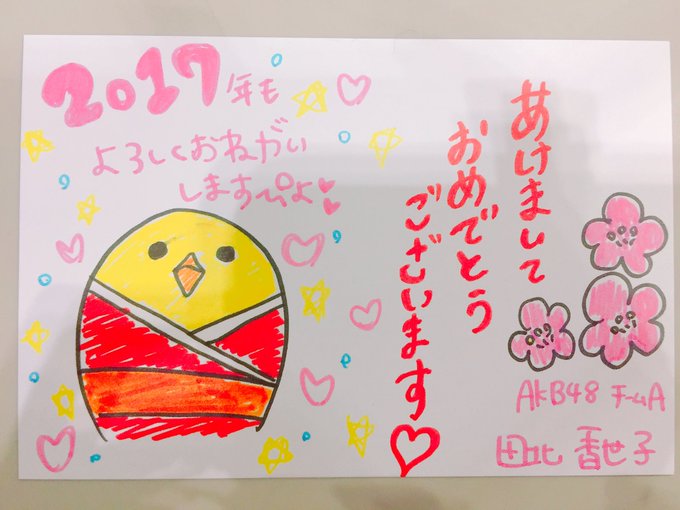 2017年も
よろしくおねがい
しますぴよ♥
あけまして
おめでとう
ございます♡
AKB48 チームA
田北 香世子